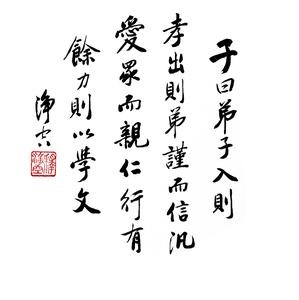 子曰弟子入則
孝出則弟謹而信汎
愛眾而親仁行有
餘力則以學文
淨空